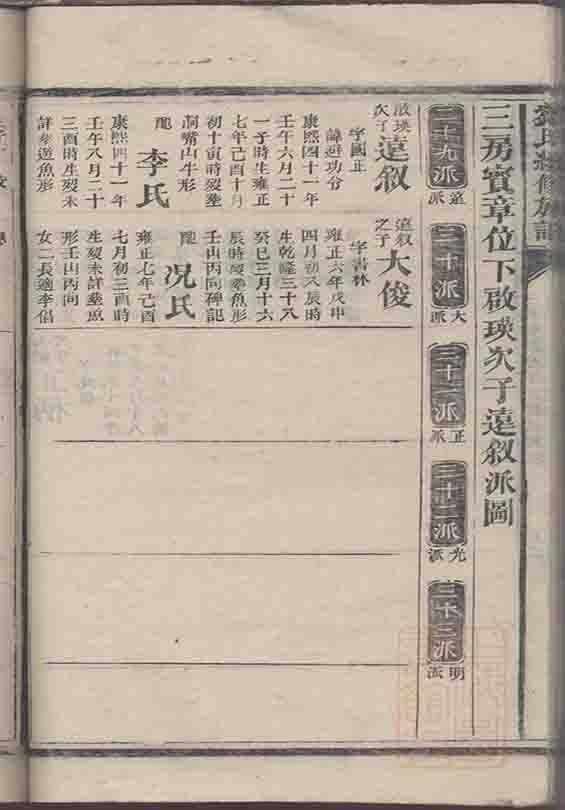 三房賓章位下啟瑛次子遠叙派圖
二十九派
遠派
三十派
大派
三十一派
正派
三十二派
光派
三十三派
明派
啟瑛
次子
遠叙
字國正
諱遊功兮
康熙四十一年
壬午六月二十
一子時生雍正
七年己酉十月
初十寅時歿塟
洞嘴山牛形
配
李氏
康熙四十一年
壬午八月二十
三酉時生歿未
詳塟遊魚形
遠叙
之子
大俊
字書林
雍正六年戊申
四月初八辰時
生乾隆三十八
癸巳三月十六
辰時歿塟魚形
壬山丙向碑記
配
况氏
雍正七年己酉
七月初三酉時
生歿未詳塟魚
形壬山丙向
女二長適李倡